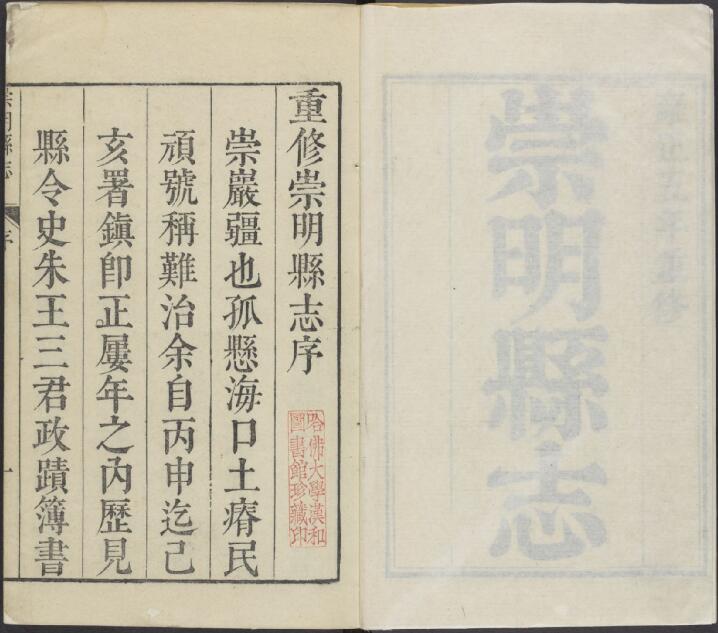 崇明縣志
重修崇明縣志序
哈佛大學漢和
圖書館珍藏印
崇巖疆也孤懸海口土瘠民
頑號稱難治余自丙申迄己
亥署鎮印正屢年之內歷見
縣令史朱王三君政蹟簿書
崇明縣志
序
一